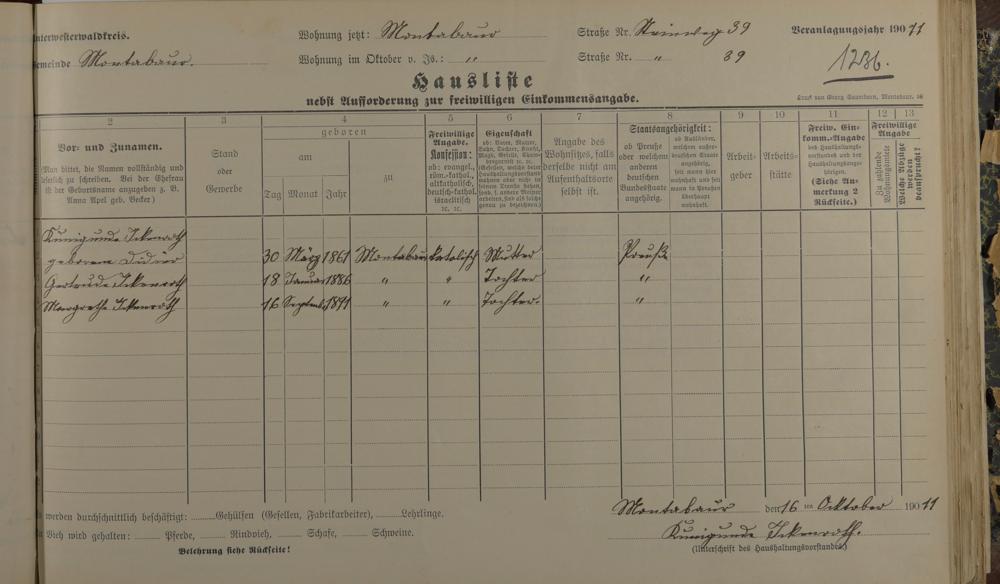 Unterwesterwaldkreis.
Wohnung jetzt: Montabaur
Straße Nr. Steinweg 39
Veranlagungsjahr 190 11
Gemeinde Montabaur.
Wohnung im Oktober v. Js.: "
Straße Nr. " 39
1286.
Hausliste
nebst Aufforderung zur freiwilligen Einkommensangabe.
Druck von Georg Sauerborn, Montabaur.
2
3
4
5
6
7
8
9
10
11
12
13
Vor- und Zunamen.
(Man bittet, die Namen vollständig und
leserlich zu schreiben. Bei der Ehefrau
ist der Geburtsname anzugeben z. B.
Anna Apel geb. Becker)
Stand
oder
Gewerbe
geboren
am
zu
Tag
Monat
Jahr
Freiwillige
Angabe.
Konfession:
ob: evangel.,
röm.-kathol.,
altkatholisch,
deutsch-kathol.
israelitisch
2c. 2c.
Eigenschaft
Angabe des
Wohnsitzes, falls
derselbe nicht am
Aufenthaltsorte
selbst ist.
Staatsangehörigkeit:
ob Preuße
oder welchem
anderen
deutschen
Bundesstaate
angehörig.
Arbeit-
geber
Arbeits-
stätte
Freiw. Ein-
komm.-Angabe
des Haushaltungs-
vorstandes und der
Haushaltungsange-
hörigen.
(Siehe An-
merkung 2
Rückseite.)
Freiwillige
Angabe
Zu zahlende
Wohnungsmiete
Welche Abzüge
werden
beansprucht?
Kunigunde Ickenroth
geborene Didier 30 März 1861 Montabaur katolisch Mutter Preuße
Gertrude Ickenroth 18 Januar 1886 " " Tochter "
Margrethe Ickenroth 16 Septemb 1891 " " Tochter. "
werden durchschnittlich beschäftigt: Gehülfen (Gesellen, Fabrikarbeiter), Lehrlinge.
Vieh wird gehalten: Pferde, Rindvieh, Schafe, Schweine.
Belehrung siehe Rückseite!
Montabaur den 16 ten Oktober 190 11
Kunigunde Ickenroth.
(Unterschrift des Haushaltungsvorstandes)